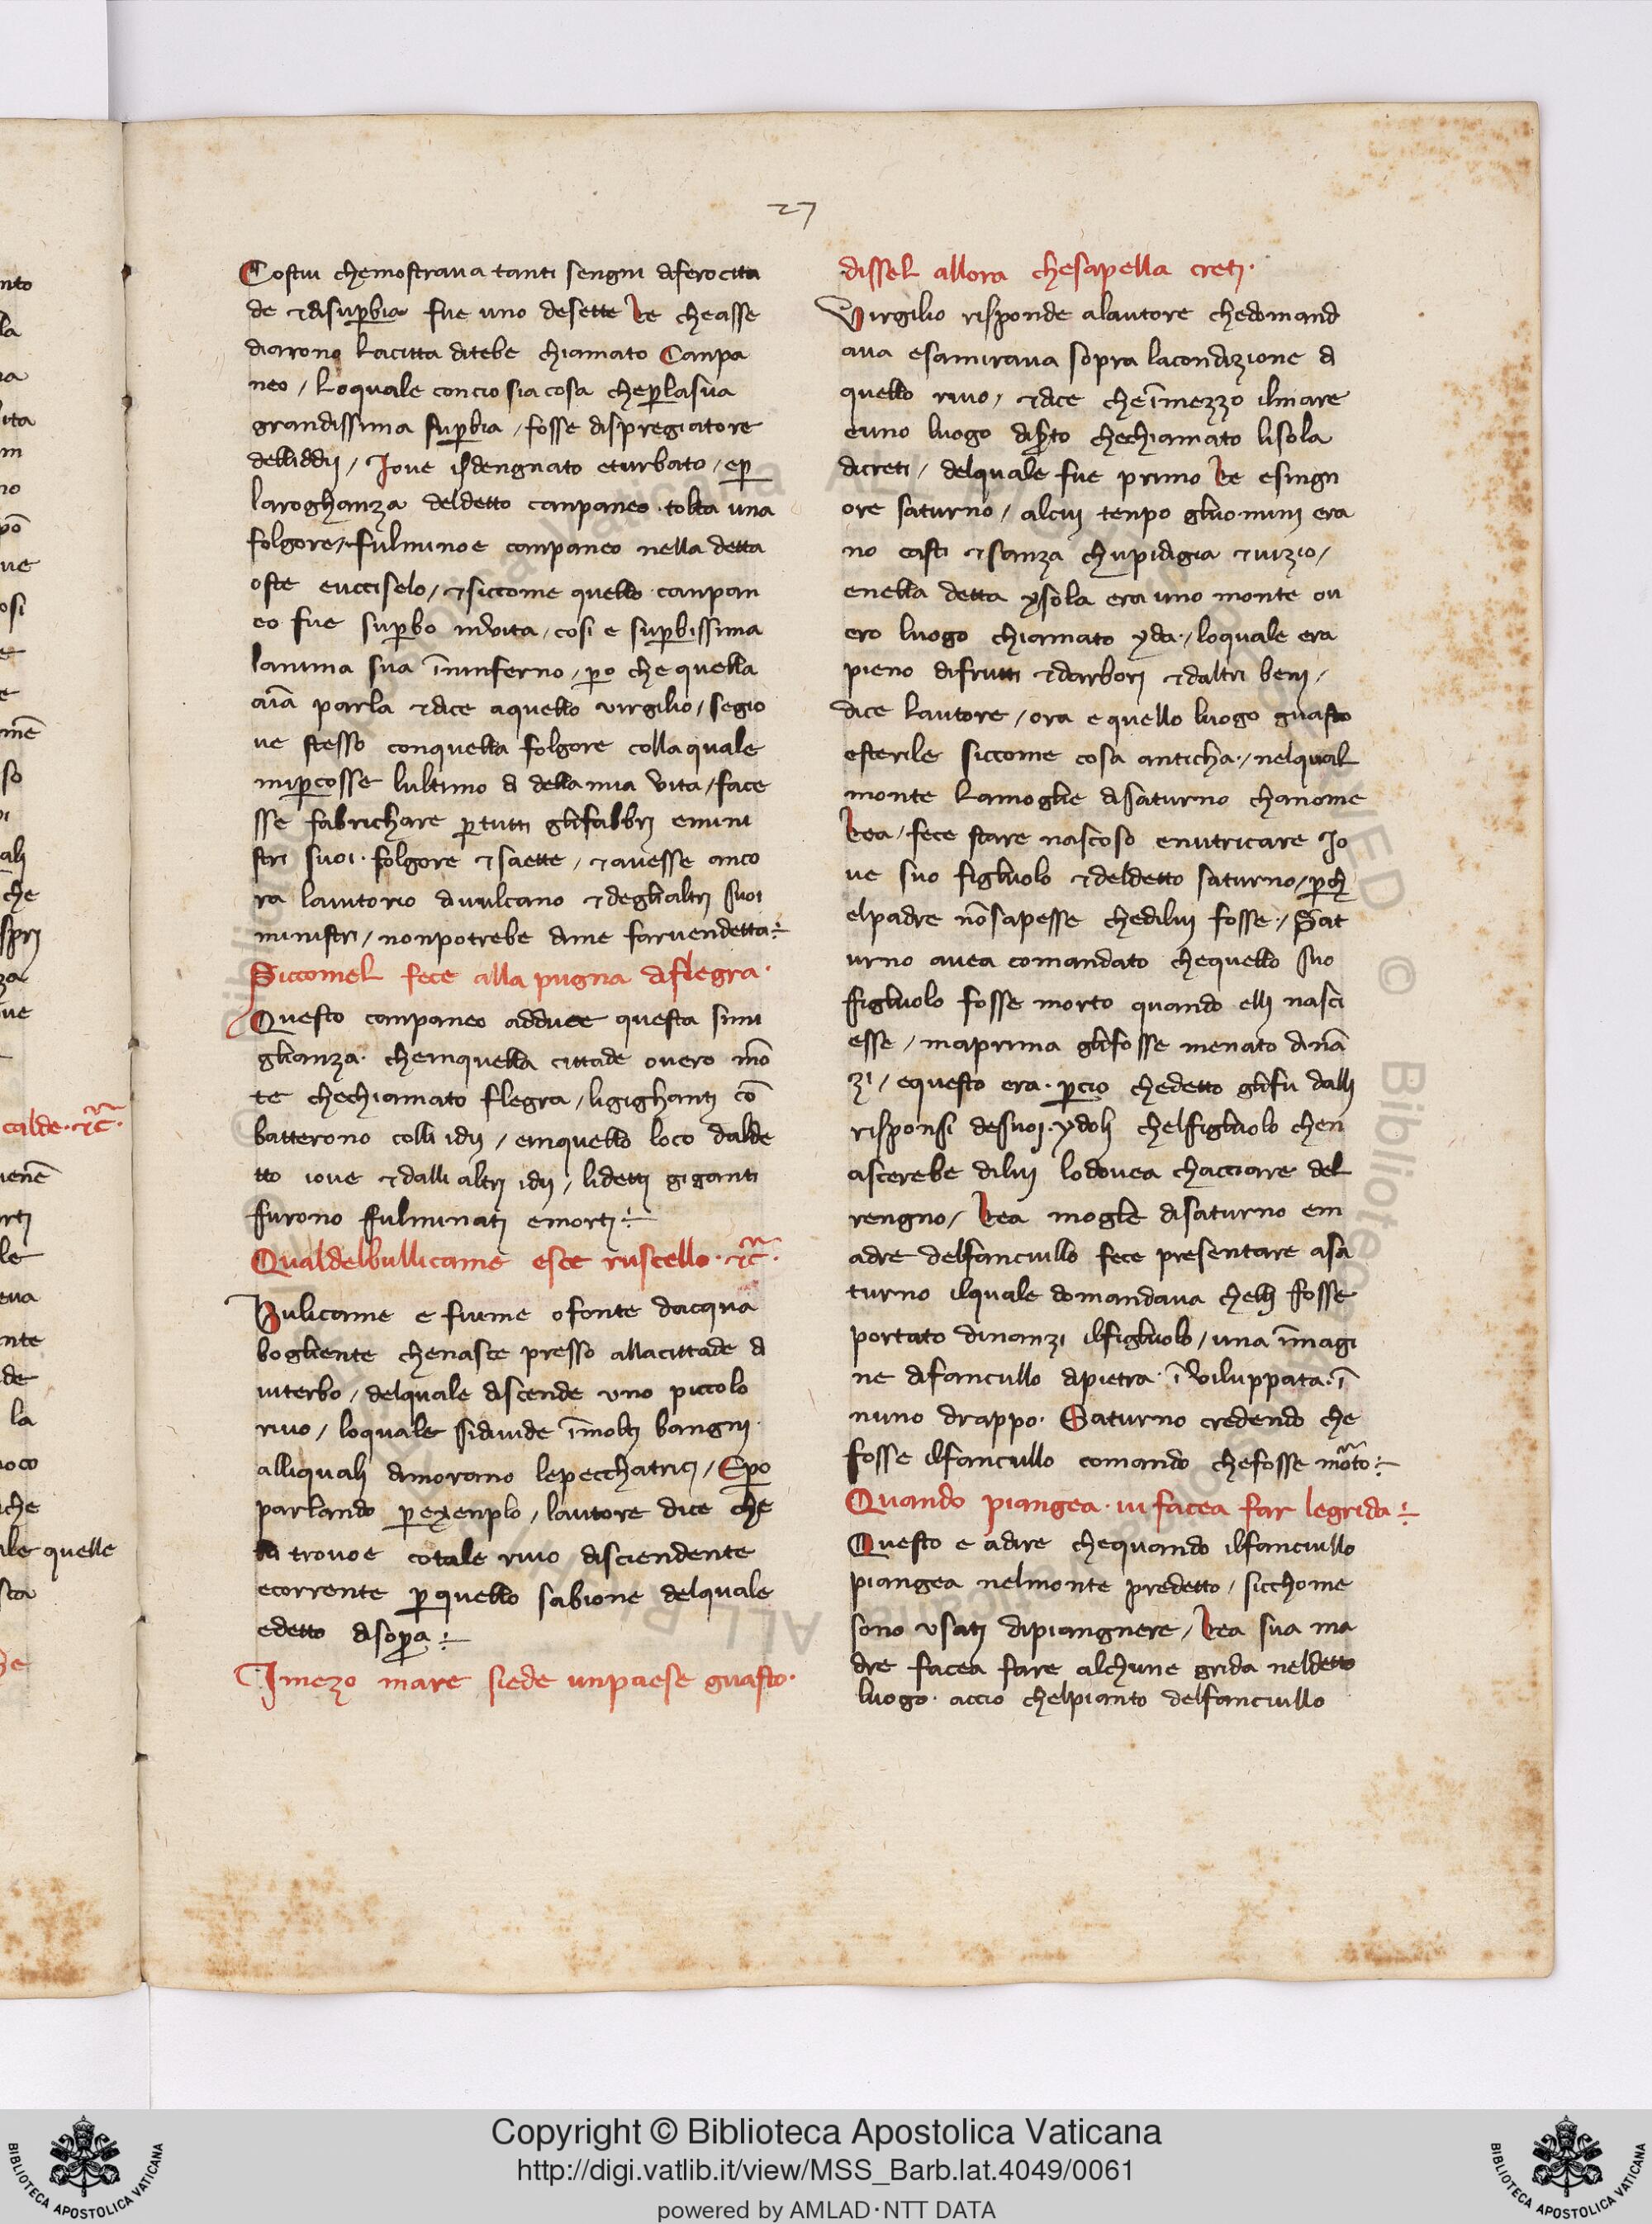 nto
la
ra
ita
m
no
pō
ue
osi
e
e
mē
so
ali
che
spri
za
ue
calde·⁊c̃·
uenē
rti
le
eua
nte
de
la
oco
che
ale quelle
sta
he
27
Costui chemostraua tanti sengni diferocita
de ⁊disuꝑbia fue uno desette Re cheasse
diarono Lacitta ditebe chiamato Canpa
neo / Loquale concio sia cosa cheꝑlasua
grandissima suꝑbia / fosse dispregiatore
delliddij / Joue isdengnato eturbato / eꝑ
laroghanza deldetto canpaneo · tolta una
folgore / fulminoe canpaneo nella detta
oste eucciselo / ⁊siccome quello canpan
eo fue suꝑbo inuita / cosi e suꝑbissima
lanima sua īninferno / ꝑo che quella
aīa parla ⁊dice aquello virgilio / segio
ue stesso conquella folgore colla quale
miꝑcosse lultimo di della mia vita / face
sse fabrichare ꝑtutti glifabbri emini
stri suoi · folgore ⁊saette / ⁊auesse anco
ra laiutorio diuulcano ⁊deglialtri suoi
ministri / nonpotrebe dime faruendetta÷
Siccomel fece alla pugna diflegra·
Questo canpaneo adduce questa simi
glianza · cheinquella cittade ouero mō
te chechiamato flegra / ligighanti cō
batterono colli idij / einquello loco dalde
tto ioue ⁊dalli altri idij / lidetti giganti
furono ffulminati emorti÷
Qualdelbullicame esce ruscello·⁊c̃·
Bulicame e fiume ofonte dacqua
bogliente chenasce presso allacittade di
uiterbo / delquale discende uno piccolo
riuo / loquale sidiuide īmolti bangni·
alliquali dimorano lepecchatrici / Eꝑo
parlando ꝑexenplo / lautore dice che
trouoe cotale riuo disciendente
ecorrente ꝑquello sabione delquale
edetto disopra÷
Jmezo mare siede unpaese guasto·
dissel allora chesapella creti·
Virgilio risponde alautore chedomand
aua esamiraua sopra lacondizione di
quello riuo / ⁊dice cheīmezzo ilmare
euno luogo disto chechiamato lisola
dicreti / delquale fue primo Re esingn
ore saturno / alcui tenpo gliuomini era
no casti ⁊sanza chupidigia ⁊uizio /
enella detta ysola era uno monte ou
ero luogo chiamato yda · / loquale era
pieno difrutti ⁊darbori ⁊daltri beni /
dice Lautore / ora e quello luogo guasto
esterile siccome cosa anticha · / nelqual
monte Lamoglie disaturno chanome
Rea / fece stare nascoso enutricare Jo
ue suo figliuolo ⁊deldetto saturno / ꝑch̄
elpadre nōsapesse chedilui fosse · / Sat
urno auea comandato chequello suo
ffigliuolo fosse morto quando elli nasci
esse / maprima glifosse menato dinā
zi / equesto era · ꝑcio chedetto glifu dalli
risponsi desuoi · ydoli chelfigliuolo chen
ascerebe dilui lodouea chacciare del
rengno / Rea moglie disaturno em
adre delfanciullo fece presentare asa
turno ilquale domandaua chelli fosse
portato dinanzi ilfigliuolo / una īmagi
ne difancullo dipietra · īuiluppata · ī
nuno drappo · Saturno credendo che
fosse ilfancullo comando chefosse morto÷
Quando piangea · ui facea far legrida÷
Questo e adire chequando ilfanciullo
piangea nelmonte predetto / sicchome
sono usati dipiangnere / Rea sua ma
dre facea fare alchune grida neldetto
luogo · accio chelpianto delfanciullo
Copyright © Biblioteca Apostolica Vaticana
http://digi.vatlib.it/view/MSS_Barb.lat.4049/0061
powered by AMLAD·NTT DATA
BIBLIOTECA APOSTOLICA VATICANA
BIBLIOTECA APOSTOLICA VATICANA